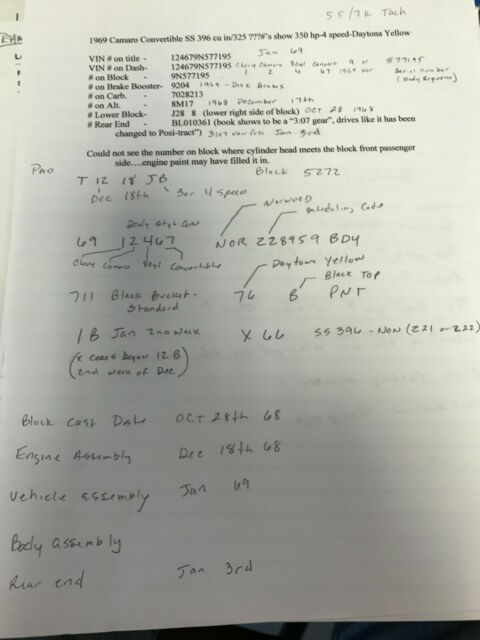 55/7K Tach
1969 Camaro Convertible SS 396 cu in/325 ???#'s show 350 hp-4 speed-Daytona Yellow
Jan 69
VIN # on title - 124679N577195
VIN # on Dash- 124679N577195 Chevy Camaro 8cyl Convert 9 N 577195
# on Block - 9N577195 1 2 4 67 1969 Nor Serial number
# on Brake Booster- 9204 1969 - Disc Brakes (Body Sequence)
# on Carb. - 7028213
# on Alt. - 8M17 1968 December 17th
# Lower Block- J28 8 (lower right side of block) OCT 28 1968
# Rear End - BL010361 (book shows to be a "3:07 gear", drives like it has been
changed to Posi-tract") 3:07 Non Posi Jan 3rd
Could not see the number on block where cylinder head meets the block front passenger
side….engine paint may have filled it in.
PAD T 12 18 JB Block 5272
Dec 18th 3 or 4 speed
Norwood
Scheduling Code
Body Style Con
69 12467 NOR 228959 BDY
Chevy Camaro 8cyl Convertible
Daytona Yellow
Black Top
711 Black Bucket- 76 B PNT
Standard
1B Jan 2nd week X 66 SS 396 - NON (Z21 or Z22)
(X codes began 12 B
2nd week of Dec)
Block Cast Date OCT 28th 68
Engine Assembly Dec 18th 68
Vehicle Assembly Jan 69
Body Assembly
Rear end Jan 3rd